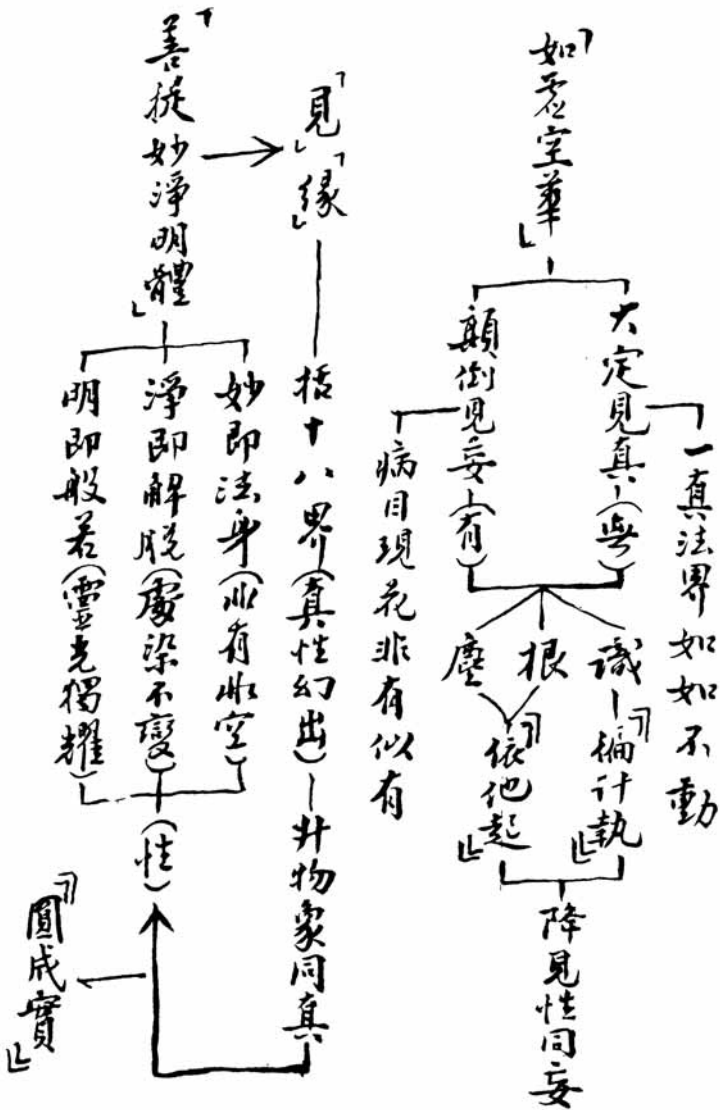 「如虛空華」
大定見真(無)
一真法界如如不動
顛倒見妄(有)
病目現花非有似有
識
根
塵
『徧計執』
『依他起』
降見性同妄
「見」「緣」
括十八界(真性幻出)
升物象同真
「菩提妙淨明體」
妙即法身(非有非空)
淨即解脫(處染不變)
明即般若(靈光獨耀)
(性)
『圓成實』